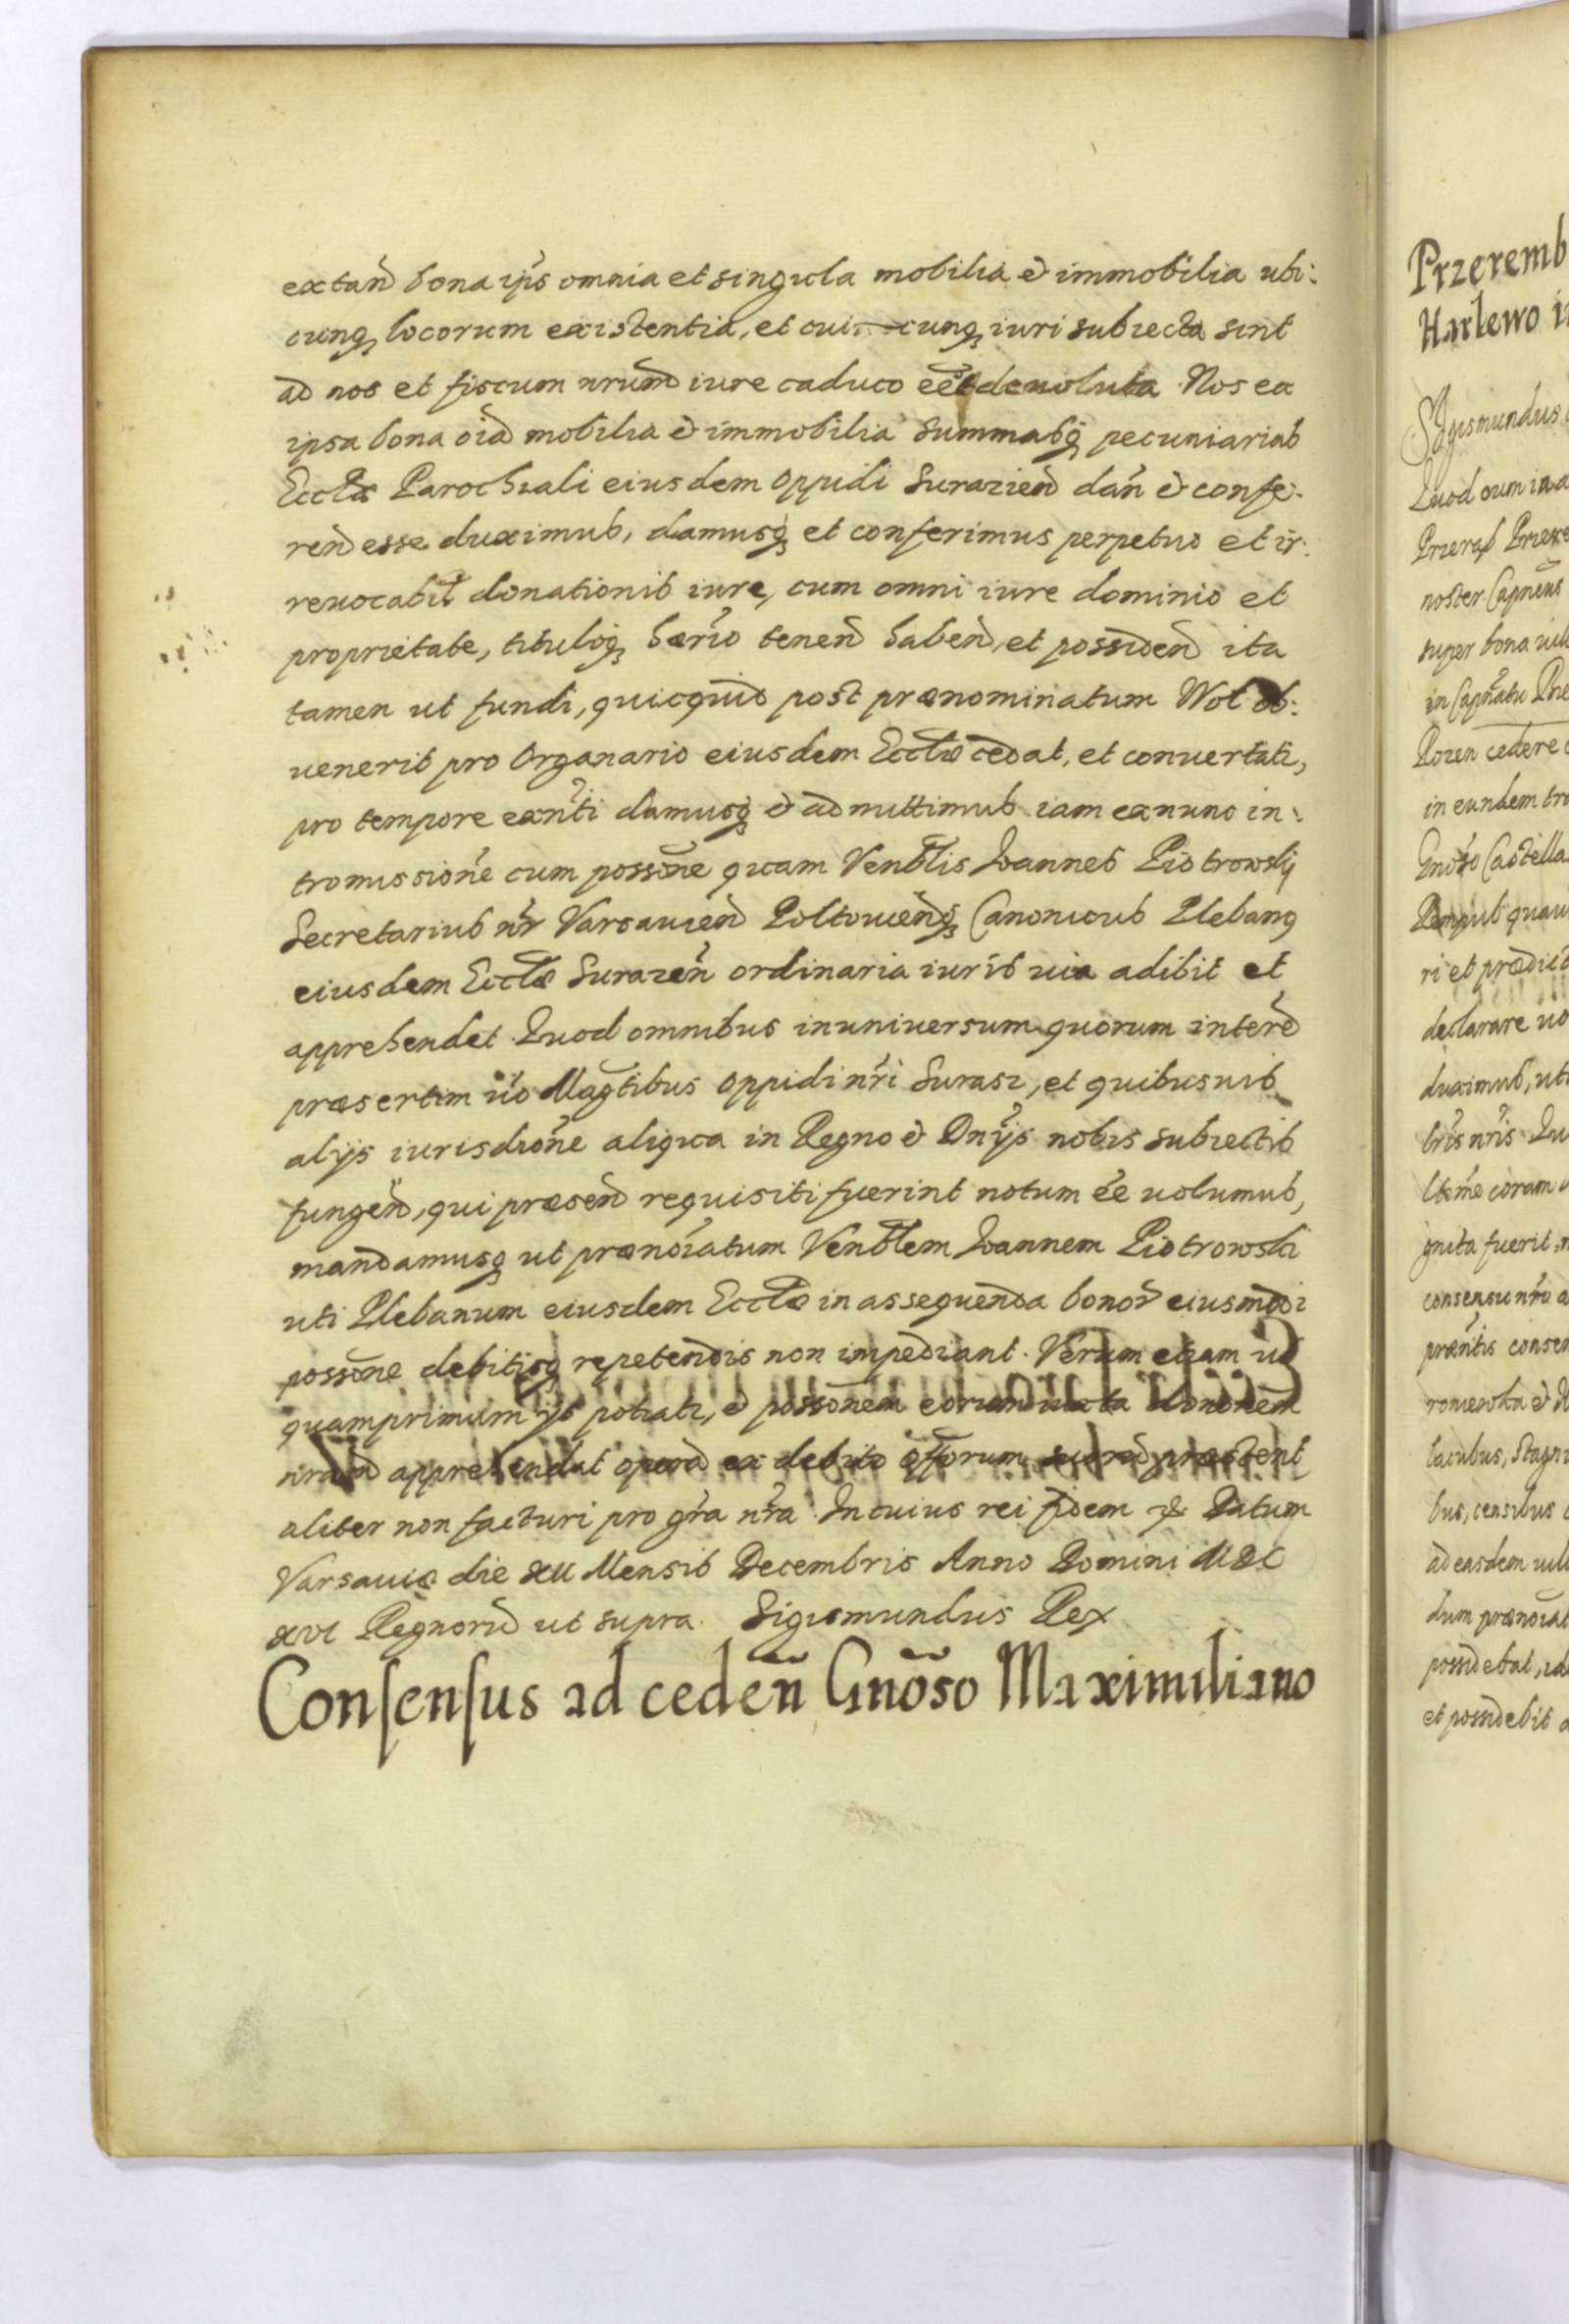 extan̄ bona ip̄s omnia et singula mobilia & immobilia ubi:
cunq, locorum existentia, et cui cunq, iuri subiecta sint
ad nos et fiscum nrum iure caduco eē devoluta Nos ea
ipsa bona oia mobilia & immobilia Summasq, pecuniarias
Eccłæ Parochiali eiusdem Oppidi Surazien̄ dan̄ & confe:
ren̄ esse duximus, damusq, et conferimus perpetuo et ir:
reuocabił donationis iure, cum omni iure dominio et
proprietate, tituloq, hærio tenen̄ haben̄, et possiden̄ ita
tamen ut fundi, quicquid post prænominatum Wot ob:
uenerit pro Organario eiusdem Eccłæ cedat, et conuertat̄,
pro tempore exn̄ti damusq, & admittimus iam ex nunc in:
tromissione cum possōne quam Venłlis Joannes Piotrowskj
Secretarius nr̄ Varsauien̄ Poltouien̄q, Canonicus Plebanꝯ
eiusdem Eccłæ Surazen̄ ordinaria iuris uia adibit et
apprehendet Quod omnibus in uniuersum quorum intere͂
præsertim uo Magtibus Oppidi nr̄i Surasz, et quibusuis
alijs iurisdione aliqua in Regno & Dnijs nobis subiectis
fungen̄, qui præsen̄ requisiti fuerint notum ee uolumus,
mandamusq, ut prænoiatum Venłlem Joannem Piotrowski
uti Plebanum eiusdem Eccłæ in assequenda bonor̄ eiusmodi
possōne debitisq, repetendis non impediant. Verum etiam ut
quamprimum ijs potiat̄, & possōnem eorum iuxta dononem
nram apprehendat opera͂ ex debito offorum suor̄ præstent
aliter non facturi pro gr̄a nr̄a In cuius rei fidem & Datum
Varsauiæ die XII Mensis Decembris Anno Domini MDC
XVI Regnorū ut supra. Sigismundus Rex
Consensus ad ceden̄ Gnōso Maximiliano
Przeremb
Harlewo i
Quod cum
noster Capneus
super bona
in eundem
Gnoso Castella
ri et prædict
declarare uo
duximus, uti
bris nr̄is Qu
coram
gnita fuerit
consensu nro a
præntis consen
lacubus, Stagni
bus, censibus
ad easdem uil
dum prænoiat
possidebat,
et possidebit a